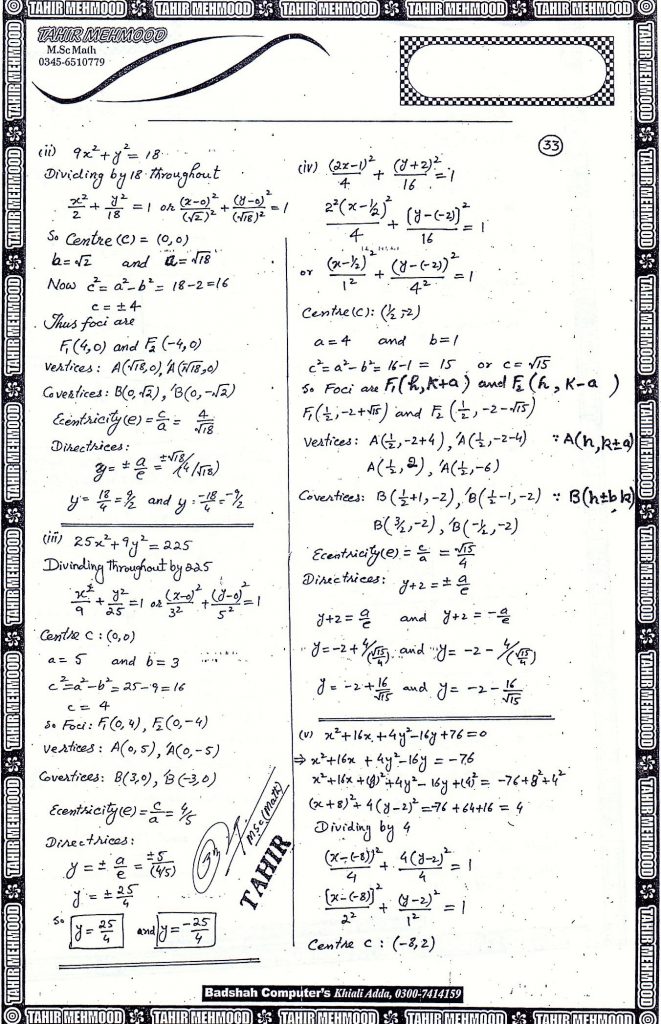 TAHIR MEHMOOD TAHIR MEHMOOD TAHIR MEHMOOD TAHIR MEHMOOD TAHIR MEHMOOD
TAHIR MEHMOOD
M.Sc Math
0345-6510779
33
(ii) 9x² + y² = 18
Dividing by 18 throughout
x²/2 + y²/18 = 1 or (x-0)²/(√2)² + (y-0)²/(√18)² = 1
So Centre (C) = (0,0)
b = √2 and a = √18
Now c² = a² - b² = 18 - 2 = 16
c = ± 4
Thus foci are
F₁(4,0) and F₂(-4,0)
Vertices: A(√18,0), 'A(-√18,0)
Covertices: B(0,√2), 'B(0,-√2)
Ecentricity(e) = c/a = 4/√18
Directrices:
y = ± a/e = ±√18/(4/√18)
y = 18/4 = 9/2 and y = -18/4 = -9/2
(iii) 25x² + 9y² = 225
Divinding Throughout by 225
x²/9 + y²/25 = 1 or (x-0)²/3² + (y-0)²/5² = 1
Centre C : (0,0)
a = 5 and b = 3
c² = a² - b² = 25 - 9 = 16
c = 4
So Foci: F₁(0,4), F₂(0,-4)
vertices: A(0,5), 'A(0,-5)
Covertices: B(3,0), 'B(-3,0)
Ecentricity(e) = c/a = 4/5
Directrices:
y = ± a/e = ±5/(4/5)
y = ± 25/4
So y = 25/4 and y = -25/4
M.Sc(Math)
TAHIR
(iv) (2x-1)²/4 + (y+2)²/16 = 1
2²(x-½)²/4 + [y-(-2)]²/16 = 1
or (x-½)²/1² + (y-(-2))²/4² = 1
Centre(C): (½,-2)
a = 4 and b = 1
c² = a² - b² = 16 - 1 = 15 or c = √15
So Foci are F₁(h, k+a) and F₂(h, k-a)
F₁(½, -2+√15) and F₂(½, -2-√15)
Vertices: A(½, -2+4), 'A(½, -2-4) ∵ A(h, k±a)
A(½, 2), 'A(½, -6)
Covertices: B(½+1, -2), 'B(½-1, -2) ∵ B(h±b, k)
B(3/2, -2), 'B(-½, -2)
Ecentricity(e) = c/a = √15/4
Directrices: y+2 = ± a/e
y+2 = a/e and y+2 = -a/e
y = -2 + 4/(√15/4) and y = -2 - 4/(√15/4)
y = -2 + 16/√15 and y = -2 - 16/√15
(v) x² + 16x + 4y² - 16y + 76 = 0
⇒ x² + 16x + 4y² - 16y = -76
x² + 16x + (8)² + 4y² - 16y + (4)² = -76 + 8² + 4²
(x+8)² + 4(y-2)² = -76 + 64 + 16 = 4
Dividing by 4
(x-(-8))²/4 + 4(y-2)²/4 = 1
[x-(-8)]²/2² + (y-2)²/1² = 1
Centre C : (-8,2)
Badshah Computer's Khiali Adda, 0300-7414159
TAHIR MEHMOOD TAHIR MEHMOOD TAHIR MEHMOOD TAHIR MEHMOOD TAHIR MEHMOOD